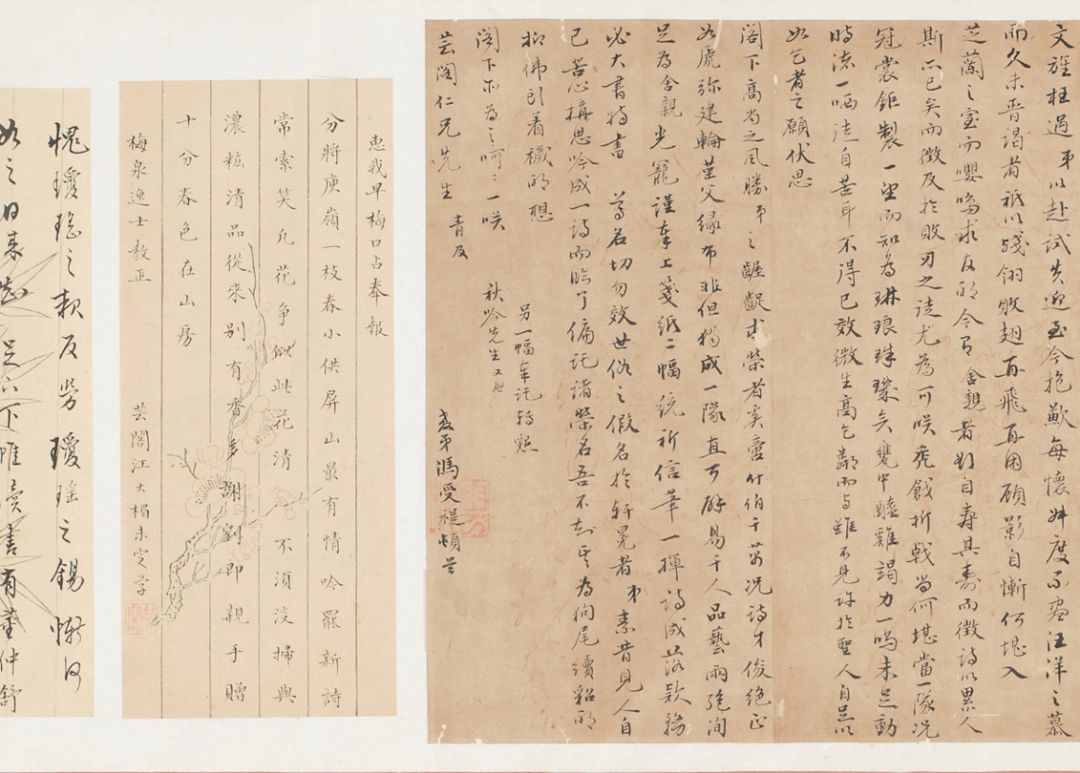 文旌枉過弟以赴試失迎至今抱歉每懷叔度不盡汪洋之慕
而久未晉謁者祗以殘翎敗翅再飛再困顧影自慚何堪入
芝蘭之室而嚶鳴求友的今有舍親者好自壽其壽而徵詩以累人
斯亦已矣而徵及於敗刃之徒尤為可咲禿戧折戟尚何堪當一隊況
冠裳鉅製一望而知為琳琅珠璣矣甕中醯雞竭力一鳴未足動
時流一哂法自苦耳不得已效微生高乞鄰而与雖不見珍於聖人自足以
如乞者之願伏思
閣下高尚之風勝弟之齷齪求榮者奚啻什伯千萬況詩才俊絕正
如虎弥建輪堇父緣布非但獨成一隊直可辟易千人品藝兩絕洵
足為舍親光寵謹奉上箋紙二幅統祈信筆一揮詩成落款務
必大書特書 尊名切勿效世俗之假名於軒冕者弟素昔見人自
己苦心構思吟成一詩而臨了偏託諸榮名吾不知其為狗尾續貂的
抑佛引着襪的想
閣下亦為之呵呵一咲
另一幅奉託轉懇
秋吟先生
芸閣仁兄先生 青及
教弟馮受禔頓首
惠我早梅口占奉報
分將庾嶺一枝春小供屏山最有情吟罷新詩
常索笑凡花爭似此花清 不須淡掃與
濃粧清品從來別有香多謝劉郎親手贈
十分春色在山房
梅泉逸士教正
芸閣江大楣未定草
愧瓊瑤之報反勞 瓊瑤之錫慚何
如之日來想足下帷讀書有董仲舒